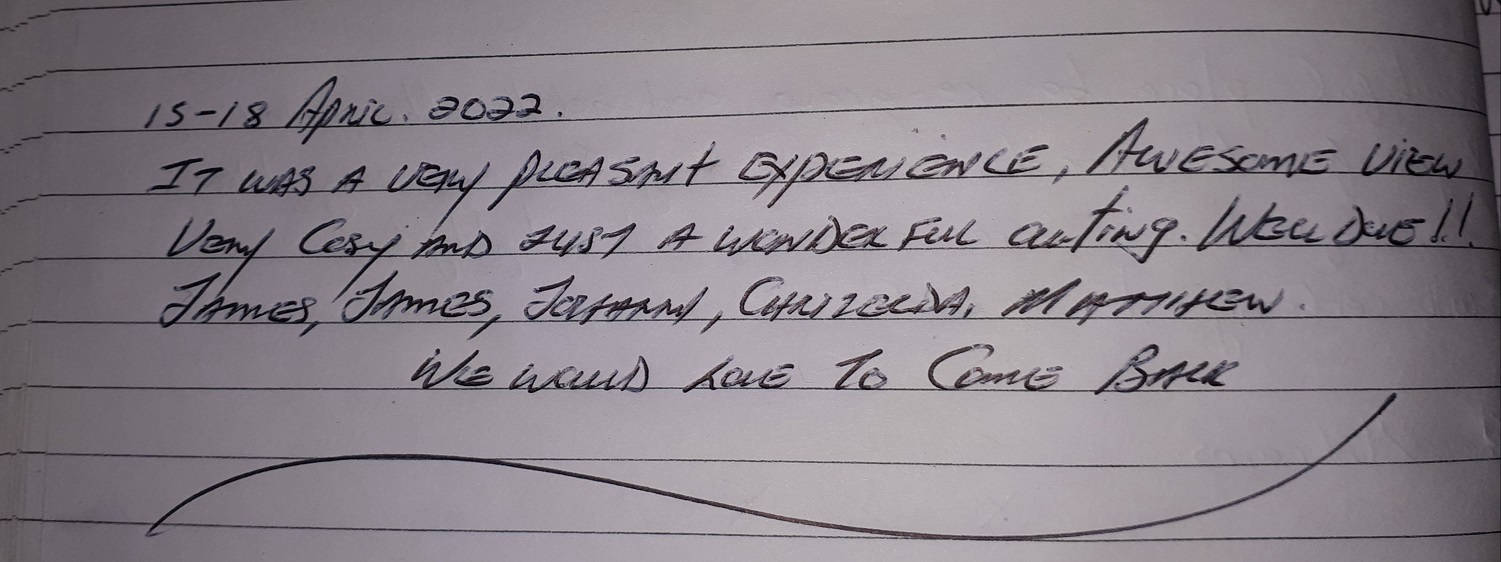 15-18 April. 2022.
It was a very pleasant experience, Awesome view
Very Cosy and just a wonderful outing. Well Done!!
James, James, Johann, Chrizelda, Matthew.
We would love to come back